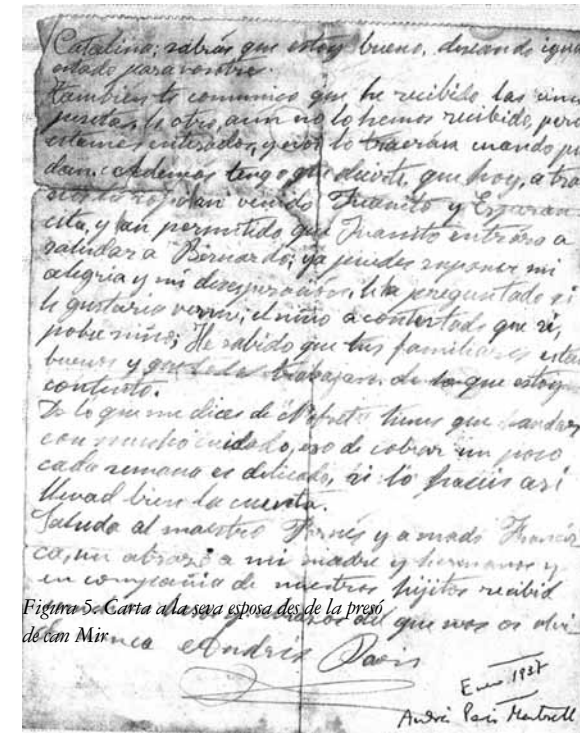 Catalina; sabrás que estoy bueno, deseando igual
estado para vosotros.
Tambien te comunico que he recibido las cinco
pesetas, lo otro, aun no lo hemos recibido, pero
estamos enterados, y nos lo traerán cuando pue
dan. Ademas tengo que decirte, que hoy, a tra
la ropa, han venido Juanito y Esperan
cita, y an permitido que Juanito entrara a
saludar a Bernardo; ya puedes suponer mi
alegria y mi desesperación, le ha preguntado si
le gustaria verme, el niño a contestado que si,
pobre niño; He sabido que tus familiares estan
buenos y que trabajan, de lo que estoy
contento.
De lo que me dices de tienes que andar
con mucho cuidado, eso de cobrar un poco
cada semana es delicado, si lo haceis asi
llevad bien la cuenta.
Saluda al maestro y a madò Francis
ca, un abrazo a mi madre y hermanos y
en compañia de nuestros hijitos recibid
del que nos os olvi
Andrés Paris
Figura 5. Carta a la seva esposa des de la presó
de can Mir
Enero 1937
Andrés Paris Martorell